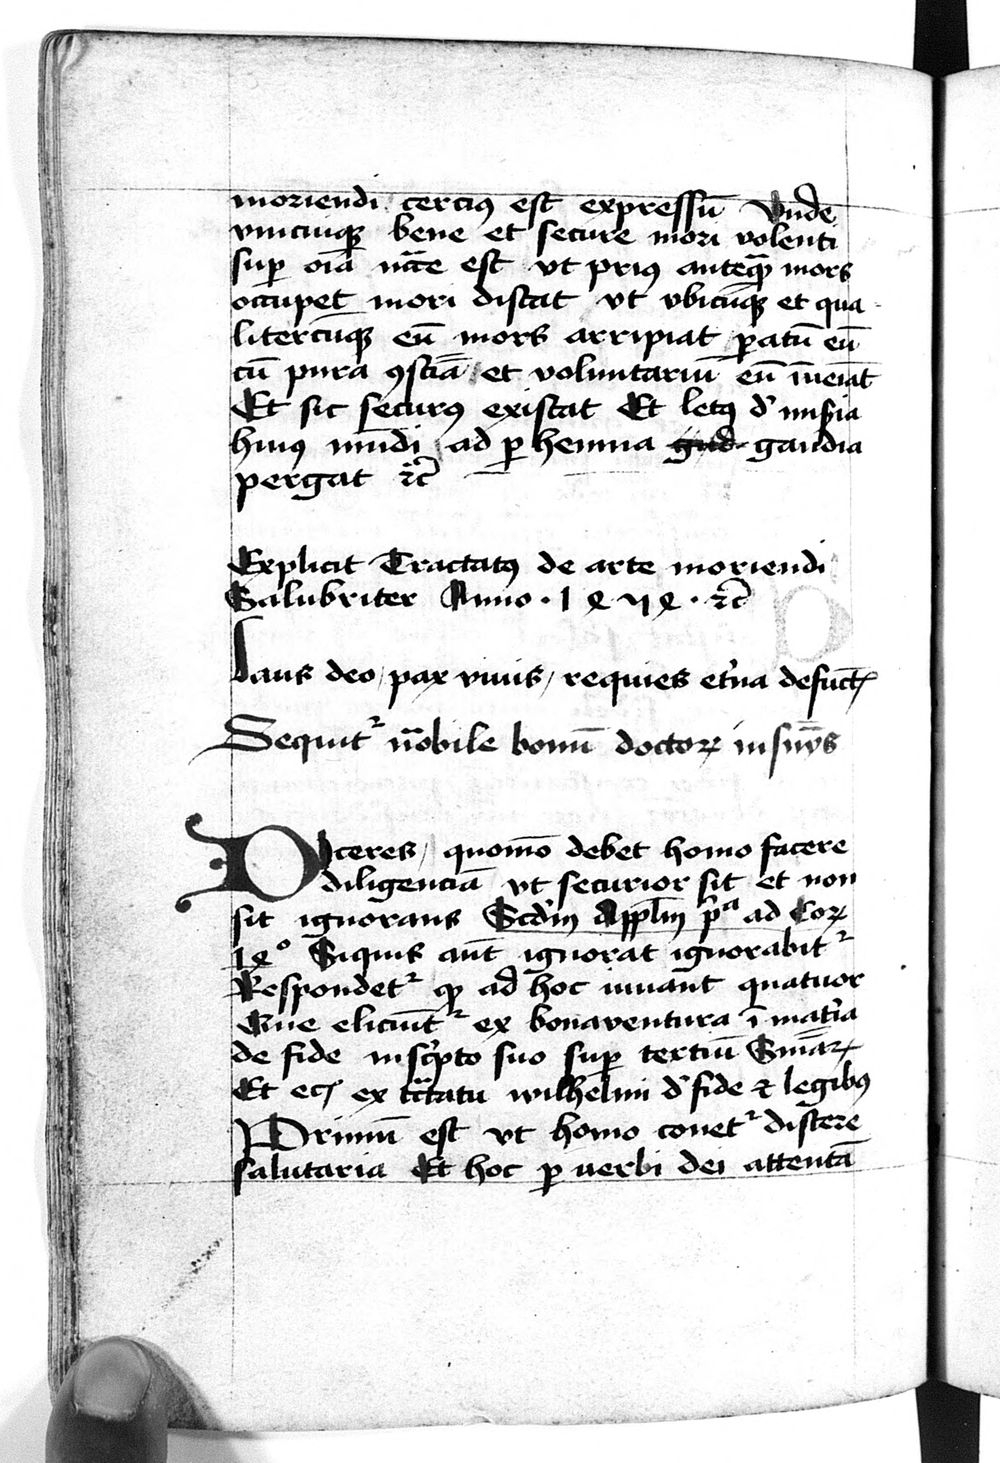 moriendi tercius est expressū Vnde
vnicuiqꝫ bene et secure mori volenti
suꝑ oīa ncc̄e est vt prius anteqꝫ mors
occupet mori discat vt vbicūqꝫ et qua-
litercūqꝫ eū mors arripiat ꝑatū eū
cū pura ꝯsciā et voluntariū eū īueiat
Et sic securꝰ existat Et letꝰ d' miseia
huiꝰ mūdi ad ꝑhennia gaudia
pergat ꝛc̄
Explicit Tractatꝰ de arte moriendi
Salubriter Anno · 1474 · ꝛc̄
Laus deo / pax viuis / requies et'na defūct
Sequit' notabile bonū doctoꝝ insignis
Diceres / quomō debet homo facere
diligenciā vt securior sit et non
sit ignorans Scd'm Appl'm p'a ad Coꝝ
14° Siquis aūt ignorat ignorabit'
Respondet' qꝫ ad hoc iuuant quatuor
Que eliciūt' ex bonaventura ī mat'ia
de fide in sc'pto suo suꝑ tertiū Sniaꝝ
Et eciā ex tc̄tatu wilhelmi d' fide ⁊ legibꝰ
Primū est vt homo conet' discere
salutaria Et hoc ꝑ uerbi dei attentā